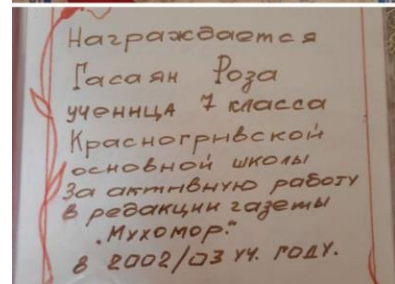 Награждается
Гасаян Роза
ученица 7 класса
Красногривской
основной школы
За активную работу
в редакции газеты
„Мухомор."
в 2002/03 уч. году.